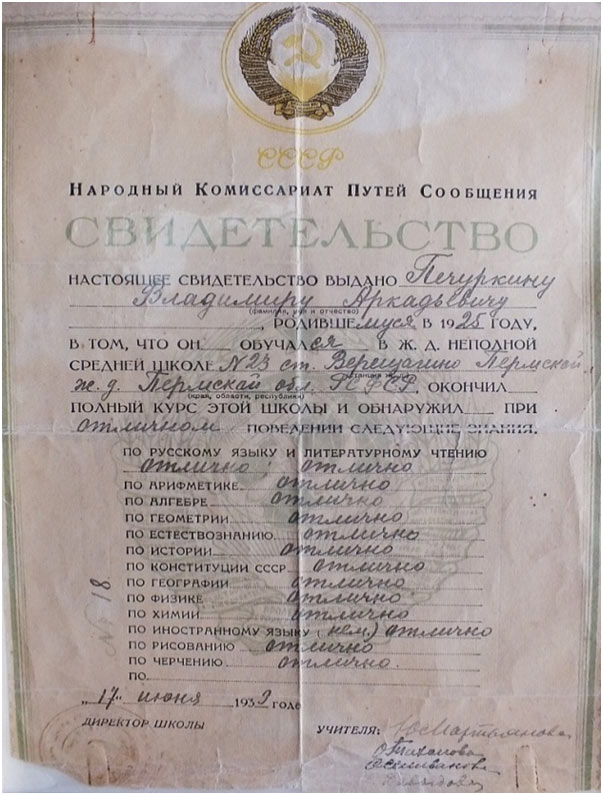 СССР
НАРОДНЫЙ КОМИССАРИАТ ПУТЕЙ СООБЩЕНИЯ
СВИДЕТЕЛЬСТВО
НАСТОЯЩЕЕ СВИДЕТЕЛЬСТВО ВЫДАНО Печуркину
Владимиру Аркадьевичу
(фамилия, имя и отчество)
, РОДИВШЕмуся В 1925 ГОДУ,
В ТОМ, ЧТО ОН ОБУЧАЛся В Ж. Д. НЕПОЛНОЙ
СРЕДНЕЙ ШКОЛЕ №23 ст. Верещагино Пермской
ж.д. Пермской обл. РСФСР, ОКОНЧИЛ
(края, области, республики)
ПОЛНЫЙ КУРС ЭТОЙ ШКОЛЫ И ОБНАРУЖИЛ ПРИ
отличном ПОВЕДЕНИИ СЛЕДУЮЩИЕ ЗНАНИЯ:
ПО РУССКОМУ ЯЗЫКУ И ЛИТЕРАТУРНОМУ ЧТЕНИЮ
отлично; отлично
ПО АРИФМЕТИКЕ отлично
ПО АЛГЕБРЕ отлично
ПО ГЕОМЕТРИИ отлично
ПО ЕСТЕСТВОЗНАНИЮ отлично
ПО ИСТОРИИ отлично
ПО КОНСТИТУЦИИ СССР отлично
ПО ГЕОГРАФИИ отлично
ПО ФИЗИКЕ отлично
ПО ХИМИИ отлично
ПО ИНОСТРАННОМУ ЯЗЫКУ (нем.) отлично
ПО РИСОВАНИЮ отлично
ПО ЧЕРЧЕНИЮ отлично.
ПО
№ 18
„17" июня 1939 ГОДА
ДИРЕКТОР ШКОЛЫ УЧИТЕЛЯ: Мартьянова
Тиханова
Селиванова